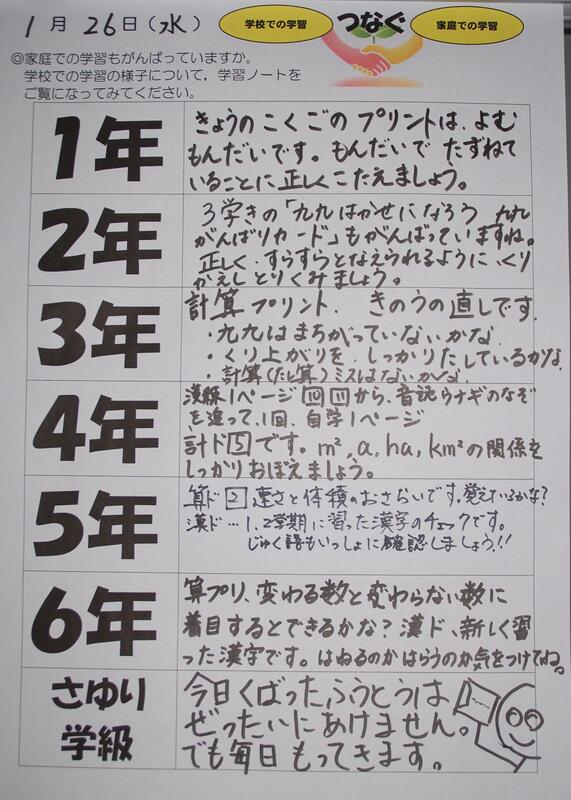 1月26日(水)
学校での学習
つなぐ
家庭での学習
◎家庭での学習もがんばっていますか。
学校での学習の様子について,学習ノートを
ご覧になってみてください。
1年
きょうのこくごのプリントは、よむ
もんだいです。もんだいで たずねて
いることに正しくこたえましょう。
2年
3学きの「九九はかせになろう 九九
がんばりカード」もがんばっていますね。
正しく、すらすらとなえられるように、くり
かえしとりくみましょう。
3年
計算プリント. きのうの直しです.
・九九はまちがっていないかな
・くり上がりを、しっかりたしているかな.
・計算(たし算)ミスはないかな
4年
漢練1ページ 四 から、音読ウナギのなぞ
を追って、1回、自学1ページ
計ド 5 です。m²,a,ha,km²の関係を
しっかりおぼえましょう。
5年
算ド 2 速さと体積のおさらいです。覚えているかな?
漢ド…1、2学期に習った漢字のチェックです。
じゅく語もいっしょに確認しましょう!!
6年
算プリ、変わる数と変わらない数に
着目するとできるかな? 漢ド、新しく習
った漢字です。はねるのかはらうのか気をつけてね。
さゆり
学級
今日くばったふうとうは
ぜったいにあけません。
でも毎日もってきます。